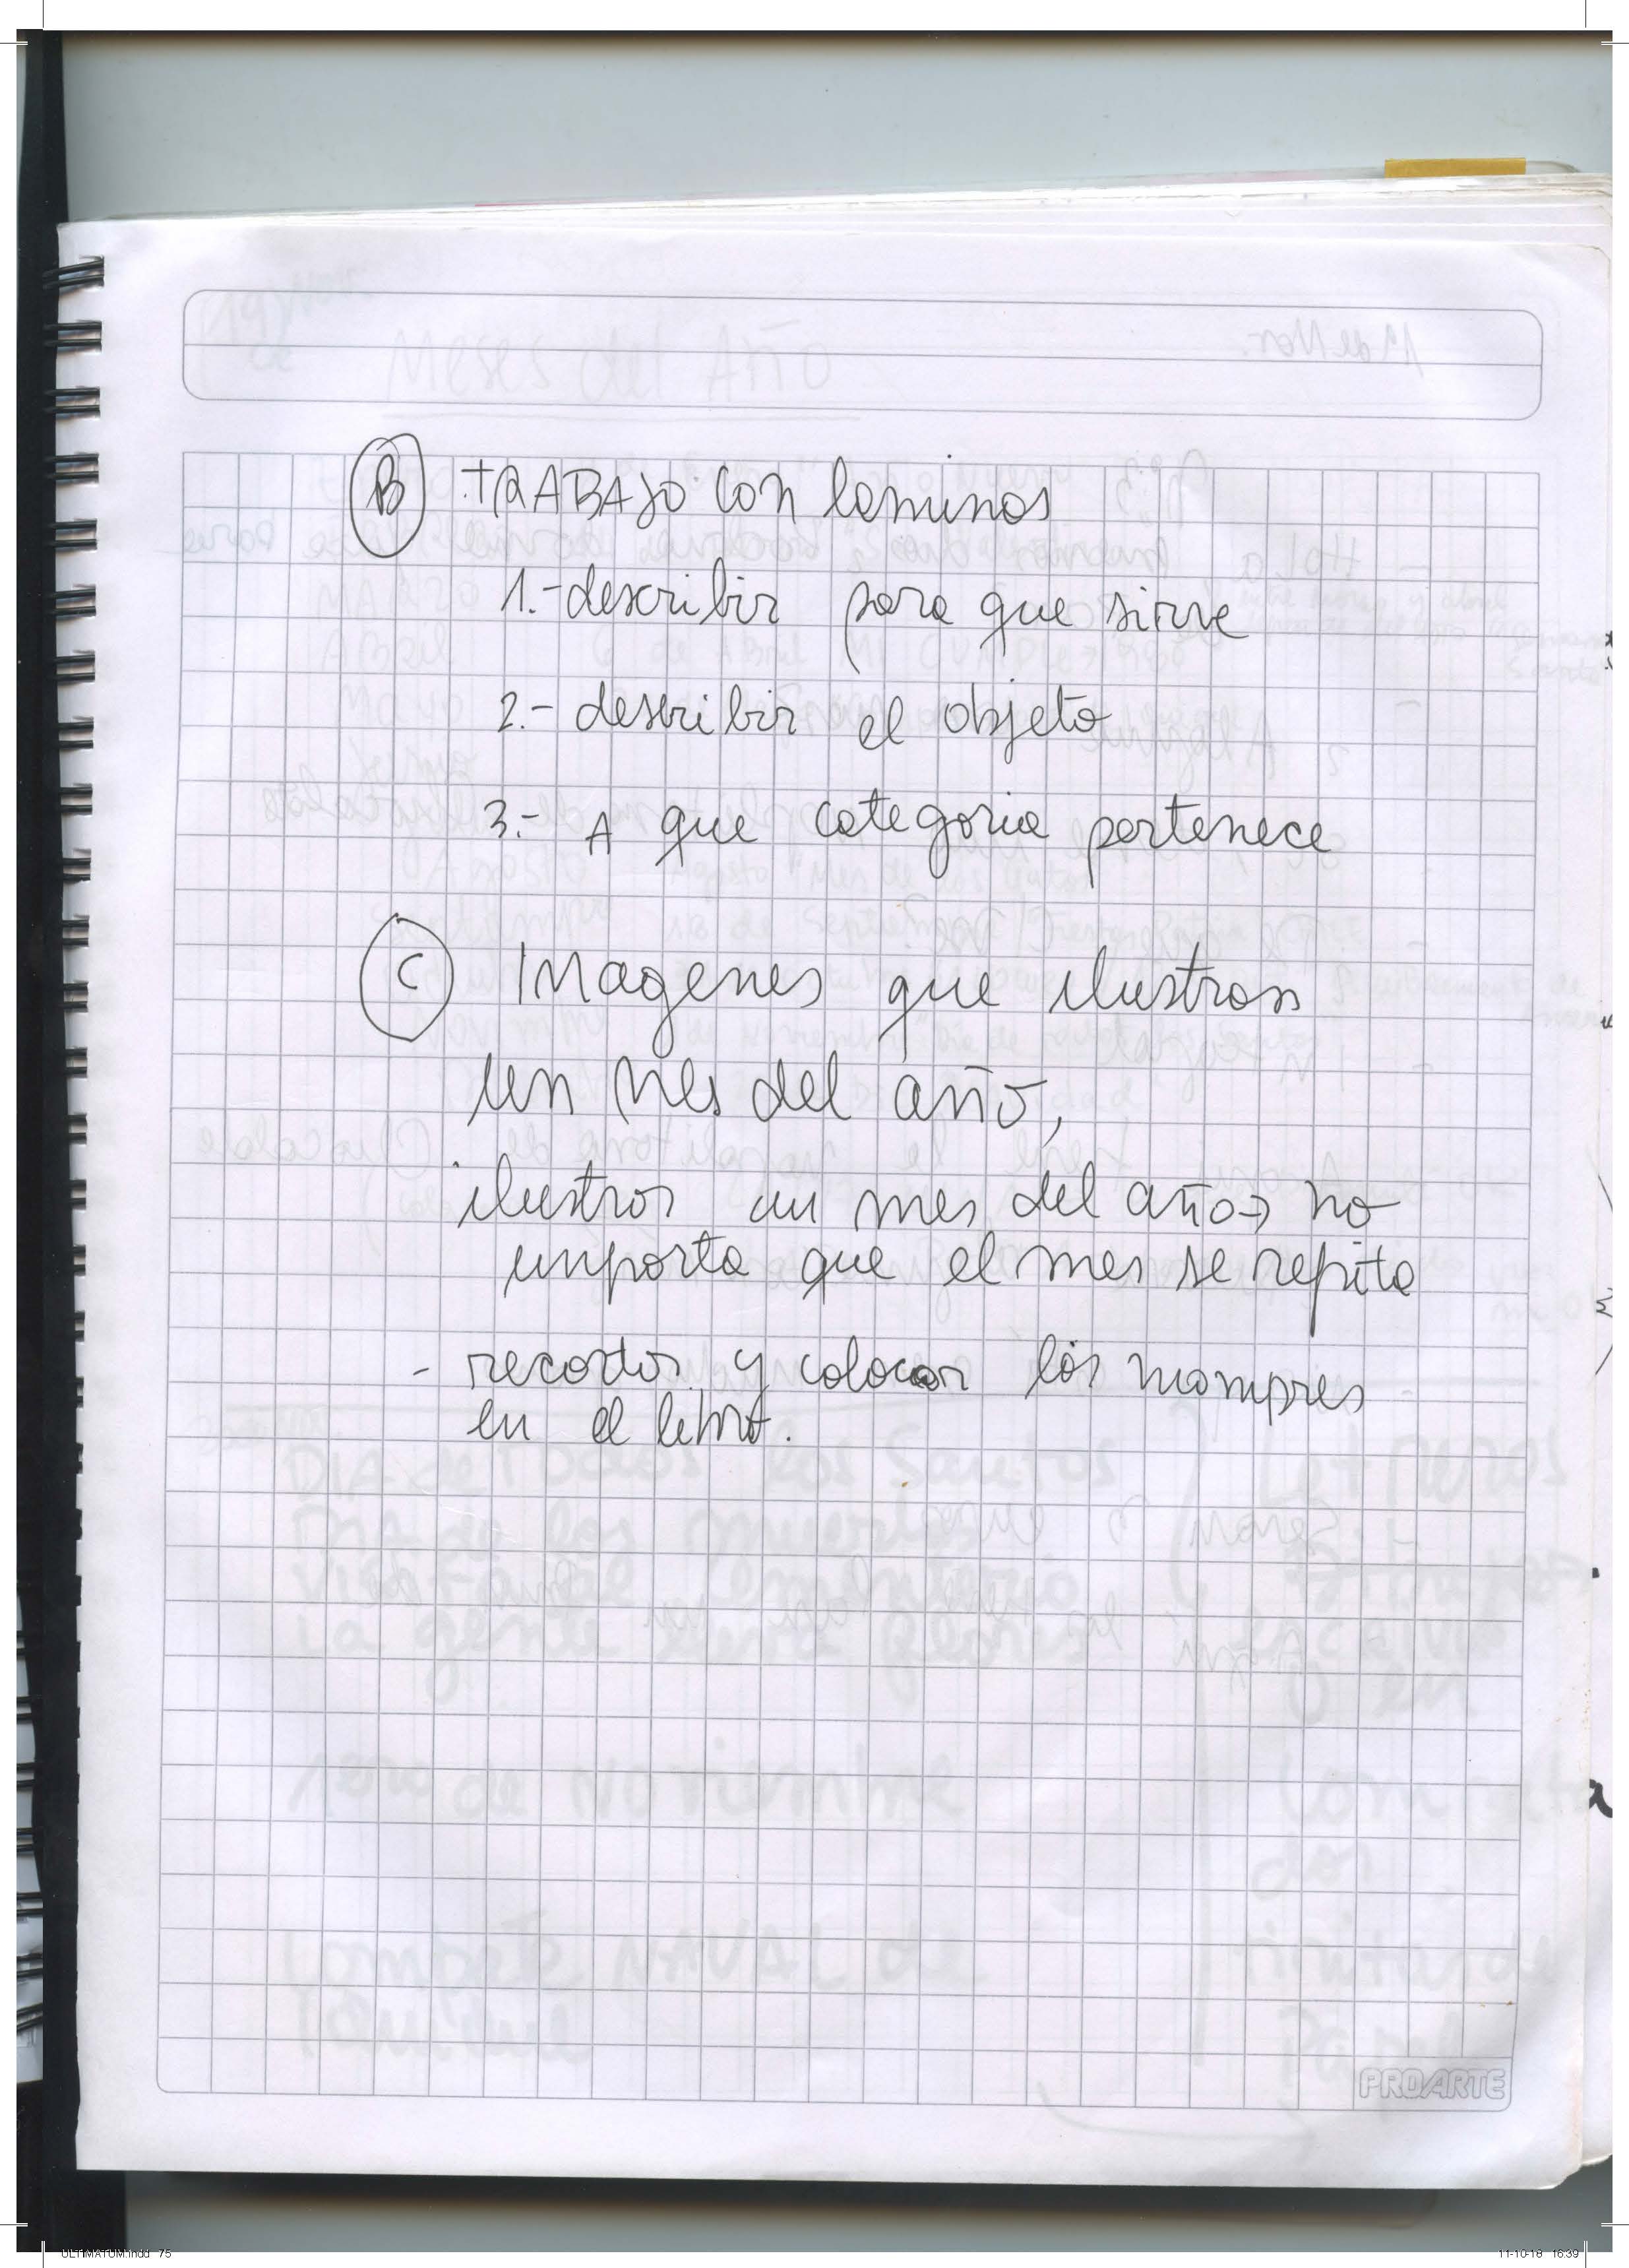 B TRABAJO con laminas
1.- describir para que sirve
2.- describir el objeto
3.- A que categoria pertenece
C Imagenes que ilustran
un mes del año,
ilustrar un mes del año → no
importa que el mes se repita
- recortar y colocar los
en el libro.
PROARTE
ULTIMATUM.indd 75
11-10-18 16:39